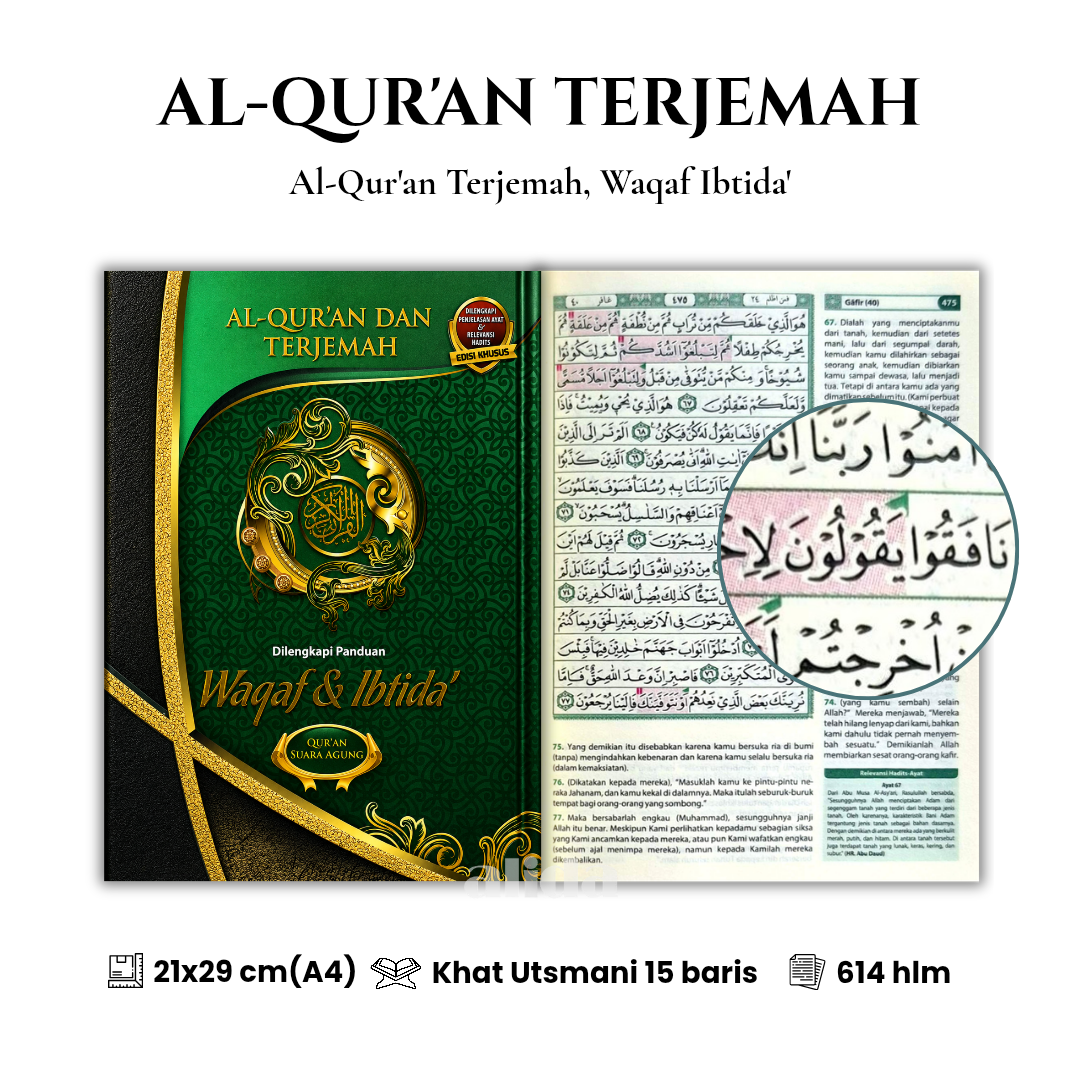 AL-QUR'AN TERJEMAH
Al-Qur'an Terjemah, Waqaf Ibtida'
AL-QUR'AN DAN
TERJEMAH
DILENGKAPI
PENJELASAN AYAT
&
RELEVANSI
HADITS
EDISI KHUSUS
Dilengkapi Panduan
Waqaf & Ibtida'
QUR'AN
SUARA AGUNG
٤٠
غافر
٤٧٥
فمن اظلم ٢٤
هُوَالَّذِيْ خَلَقَكُمْ مِّنْ تُرَابٍ ثُمَّ مِنْ نُّطْفَةٍ ثُمَّ مِنْ عَلَقَةٍ ثُمَّ
يُخْرِجُكُمْ طِفْلًا ثُمَّ لِتَبْلُغُوْٓا اَشُدَّكُمْ ثُمَّ لِتَكُوْنُوْا
شُيُوْخًا وَمِنْكُمْ مَّنْ يُّتَوَفّٰى مِنْ قَبْلُ وَلِتَبْلُغُوْٓا اَجَلًا مُّسَمًّى
وَّلَعَلَّكُمْ تَعْقِلُوْنَ ٦٧ هُوَالَّذِيْ يُحْيٖ وَيُمِيْتُ فَاِذَا
فَاِنَّمَا يَقُوْلُ لَهٗ كُنْ فَيَكُوْنُ ٦٨ اَلَمْ تَرَ اِلَى الَّذِيْنَ
اٰيٰتِ اللّٰهِ اَنّٰى يُصْرَفُوْنَ ٦٩ الَّذِيْنَ كَذَّبُوْا
اَرْسَلْنَا بِهٖ رُسُلَنَا فَسَوْفَ يَعْلَمُوْنَ ٧٠
اَعْنَاقِهِمْ وَالسَّلٰسِلُ يُسْحَبُوْنَ ٧١
يُسْجَرُوْنَ ٧٢ ثُمَّ قِيْلَ لَهُمْ اَيْنَ
مِنْ دُوْنِ اللّٰهِ قَالُوْا ضَلُّوْا عَنَّا بَلْ لَّمْ
شَيْـًٔا كَذٰلِكَ يُضِلُّ اللّٰهُ الْكٰفِرِيْنَ ٧٤
تَفْرَحُوْنَ فِى الْاَرْضِ بِغَيْرِ الْحَقِّ وَبِمَا كُنْتُمْ
اُدْخُلُوْٓا اَبْوَابَ جَهَنَّمَ خٰلِدِيْنَ فِيْهَا فَبِئْسَ
الْمُتَكَبِّرِيْنَ ٧٦ فَاصْبِرْ اِنَّ وَعْدَ اللّٰهِ حَقٌّ فَاِمَّا
نُرِيَنَّكَ بَعْضَ الَّذِيْ نَعِدُهُمْ اَوْ نَتَوَفَّيَنَّكَ فَاِلَيْنَا يُرْجَعُوْنَ ٧٧
Gāfir (40)
475
67. Dialah yang menciptakanmu
dari tanah, kemudian dari setetes
mani, lalu dari segumpal darah,
kemudian kamu dilahirkan sebagai
seorang anak, kemudian dibiarkan
kamu sampai dewasa, lalu menjadi
tua. Tetapi di antara kamu ada yang
dimatikan sebelum itu. (Kami perbuat
kepada
رَبَّنَآ
نَافَقُوْا يَقُوْلُوْنَ
اُخْرِجْتُمْ
74. (yang kamu sembah) selain
Allah?" Mereka menjawab, "Mereka
telah hilang lenyap dari kami, bahkan
kami dahulu tidak pernah menyem-
bah sesuatu." Demikianlah Allah
membiarkan sesat orang-orang kafir.
75. Yang demikian itu disebabkan karena kamu bersuka ria di bumi
(tanpa) mengindahkan kebenaran dan karena kamu selalu bersuka ria
(dalam kemaksiatan).
76. (Dikatakan kepada mereka), "Masuklah kamu ke pintu-pintu ne-
raka Jahanam, dan kamu kekal di dalamnya. Maka itulah seburuk-buruk
tempat bagi orang-orang yang sombong."
77. Maka bersabarlah engkau (Muhammad), sesungguhnya janji
Allah itu benar. Meskipun Kami perlihatkan kepadamu sebagian siksa
yang Kami ancamkan kepada mereka, atau pun Kami wafatkan engkau
(sebelum ajal menimpa mereka), namun kepada Kamilah mereka
dikembalikan.
Relevansi Hadits-Ayat
Ayat 67
Dari Abu Musa Al-Asy'ari, Rasulullah bersabda,
"Sesungguhnya Allah menciptakan Adam dari
segenggam tanah yang terdiri dari beberapa jenis
tanah. Oleh karenanya, karakteristik Bani Adam
tergantung jenis tanah sebagai bahan dasarnya.
Dengan demikian di antara mereka ada yang berkulit
merah, putih, dan hitam. Di antara tanah tersebut
juga terdapat tanah yang lunak, keras, kering, dan
subur." (HR. Abu Daud)
21x29 cm(A4)
Khat Utsmani 15 baris
614 hlm